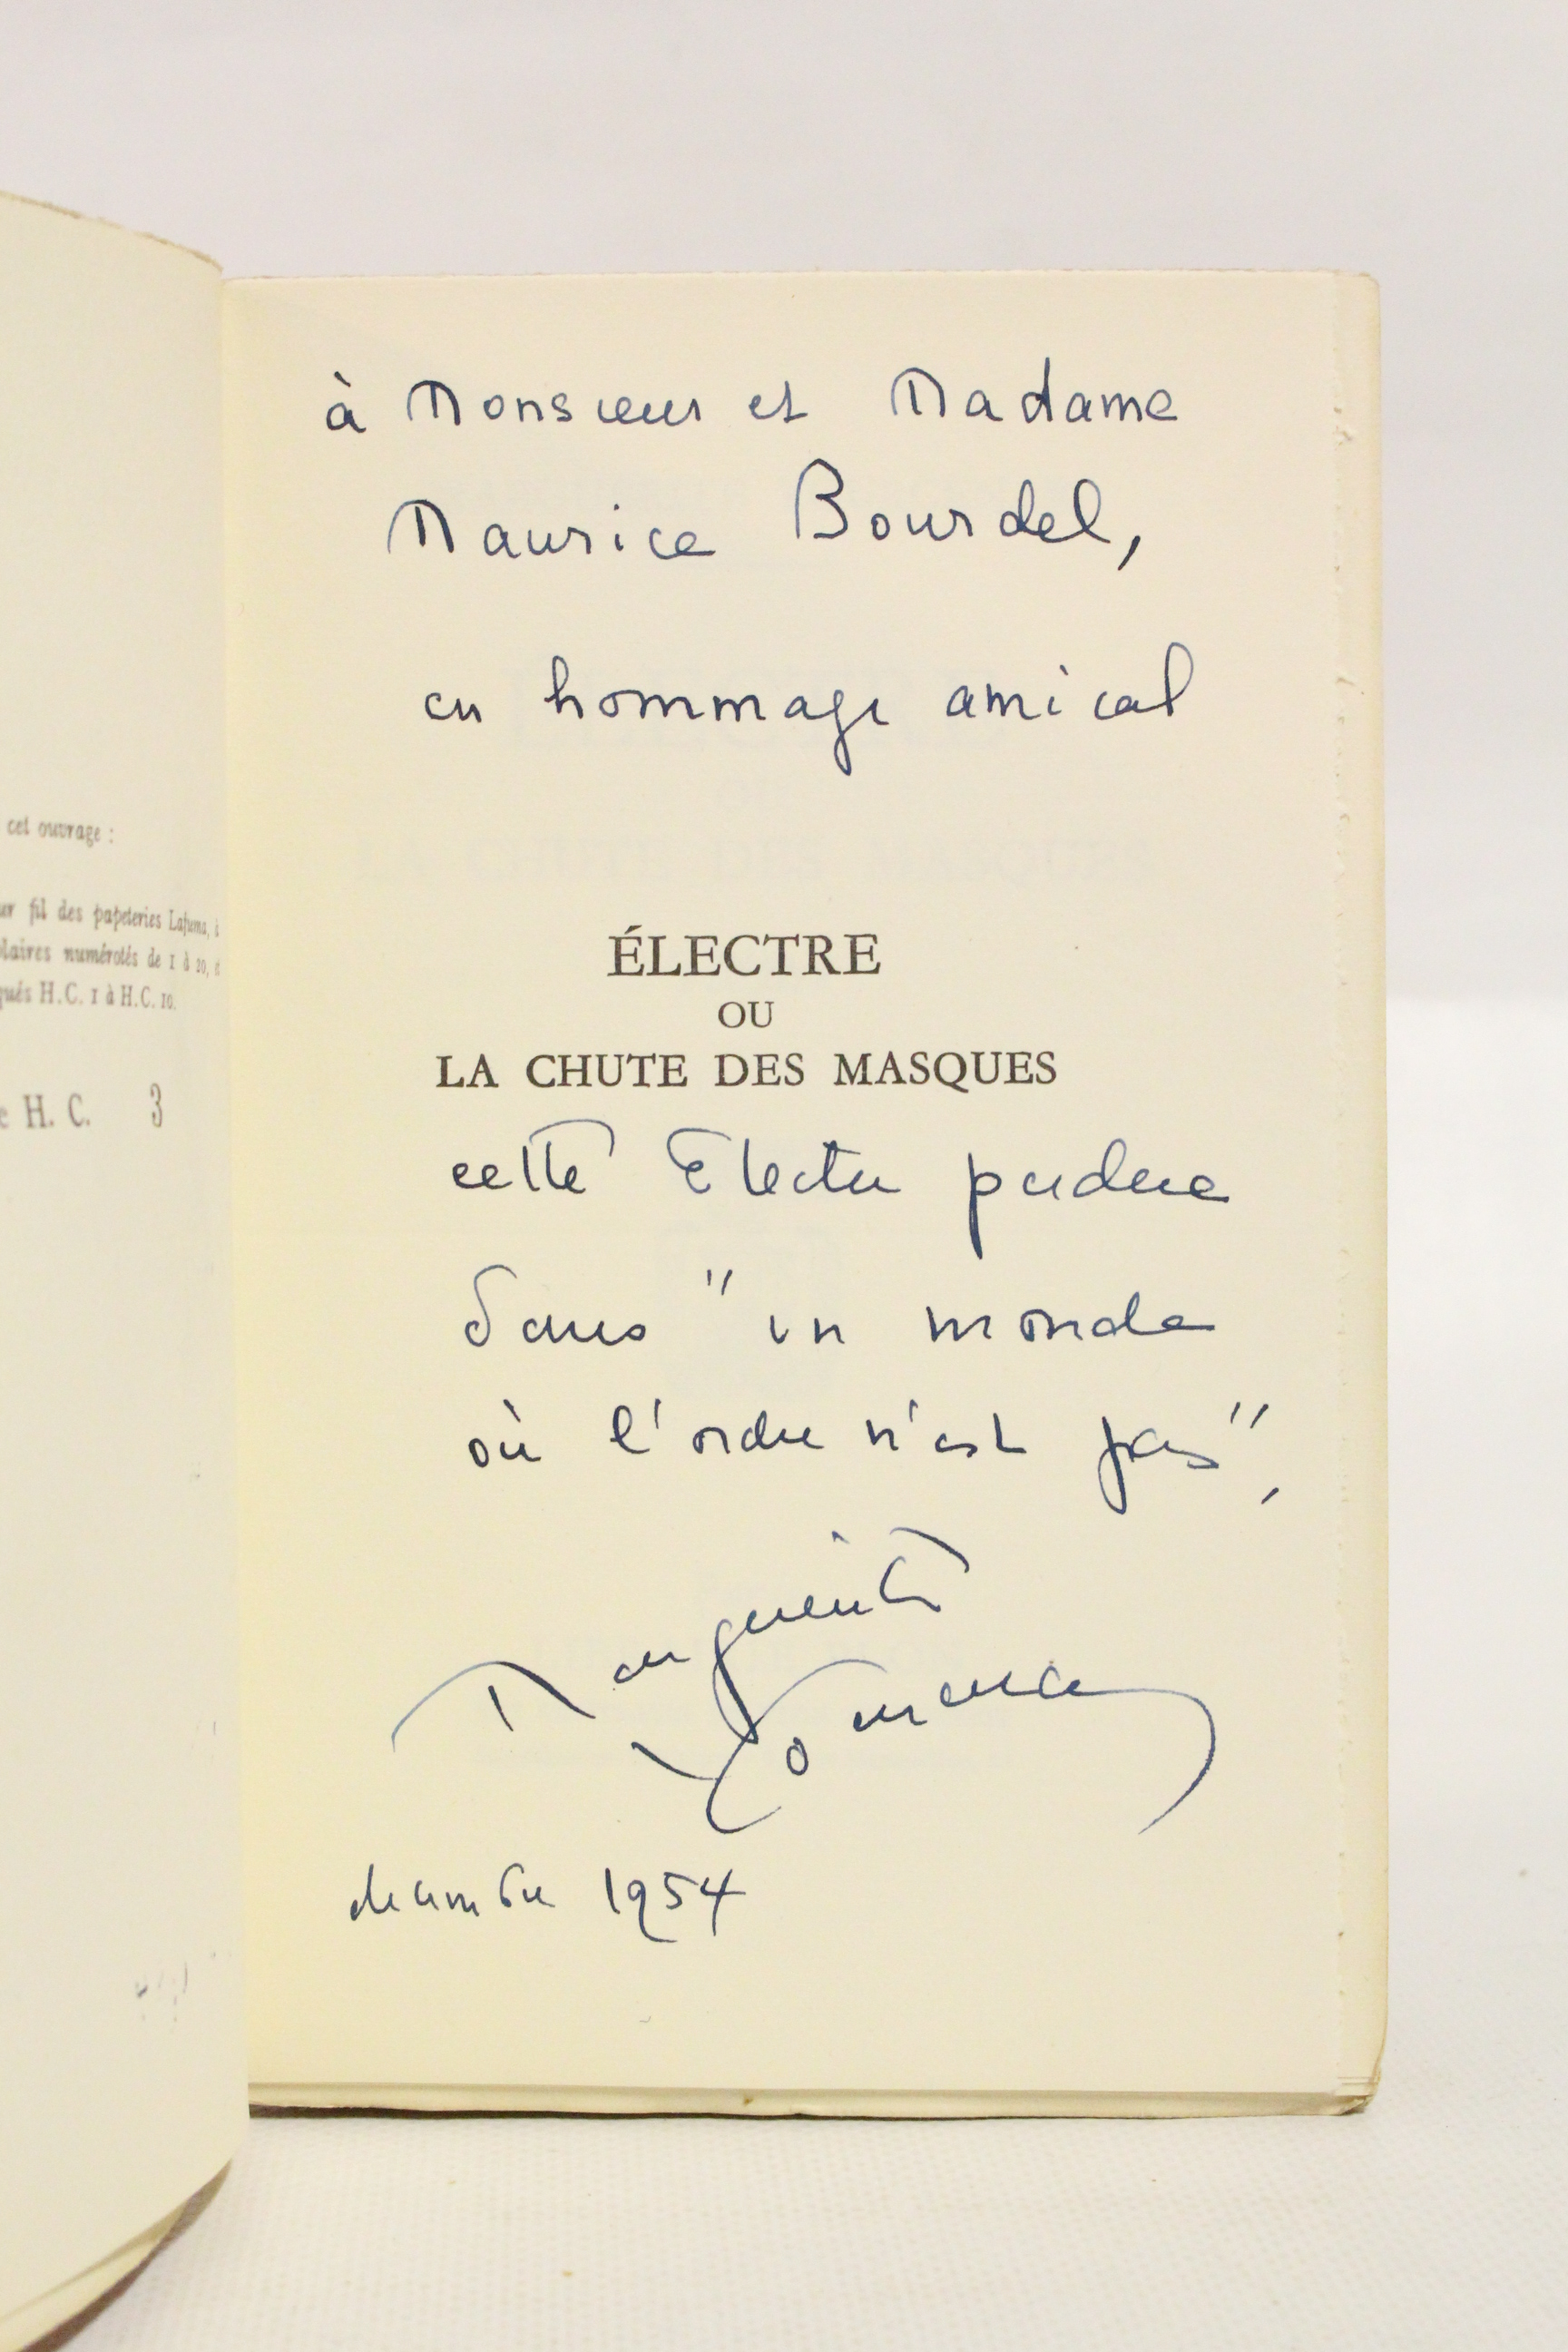 cet ouvrage :
fil des papeteries Lafuma, à
numérotés de 1 à 10, et
H.C. 1 à H.C. 10.
H. C. 3
à Monsieur et Madame
Maurice Bourdel,
en hommage amical
ÉLECTRE
OU
LA CHUTE DES MASQUES
cette Electre perdue
dans " un monde
où l'ordre n'est pas",
Marguerite
Yourcenar
décembre 1954